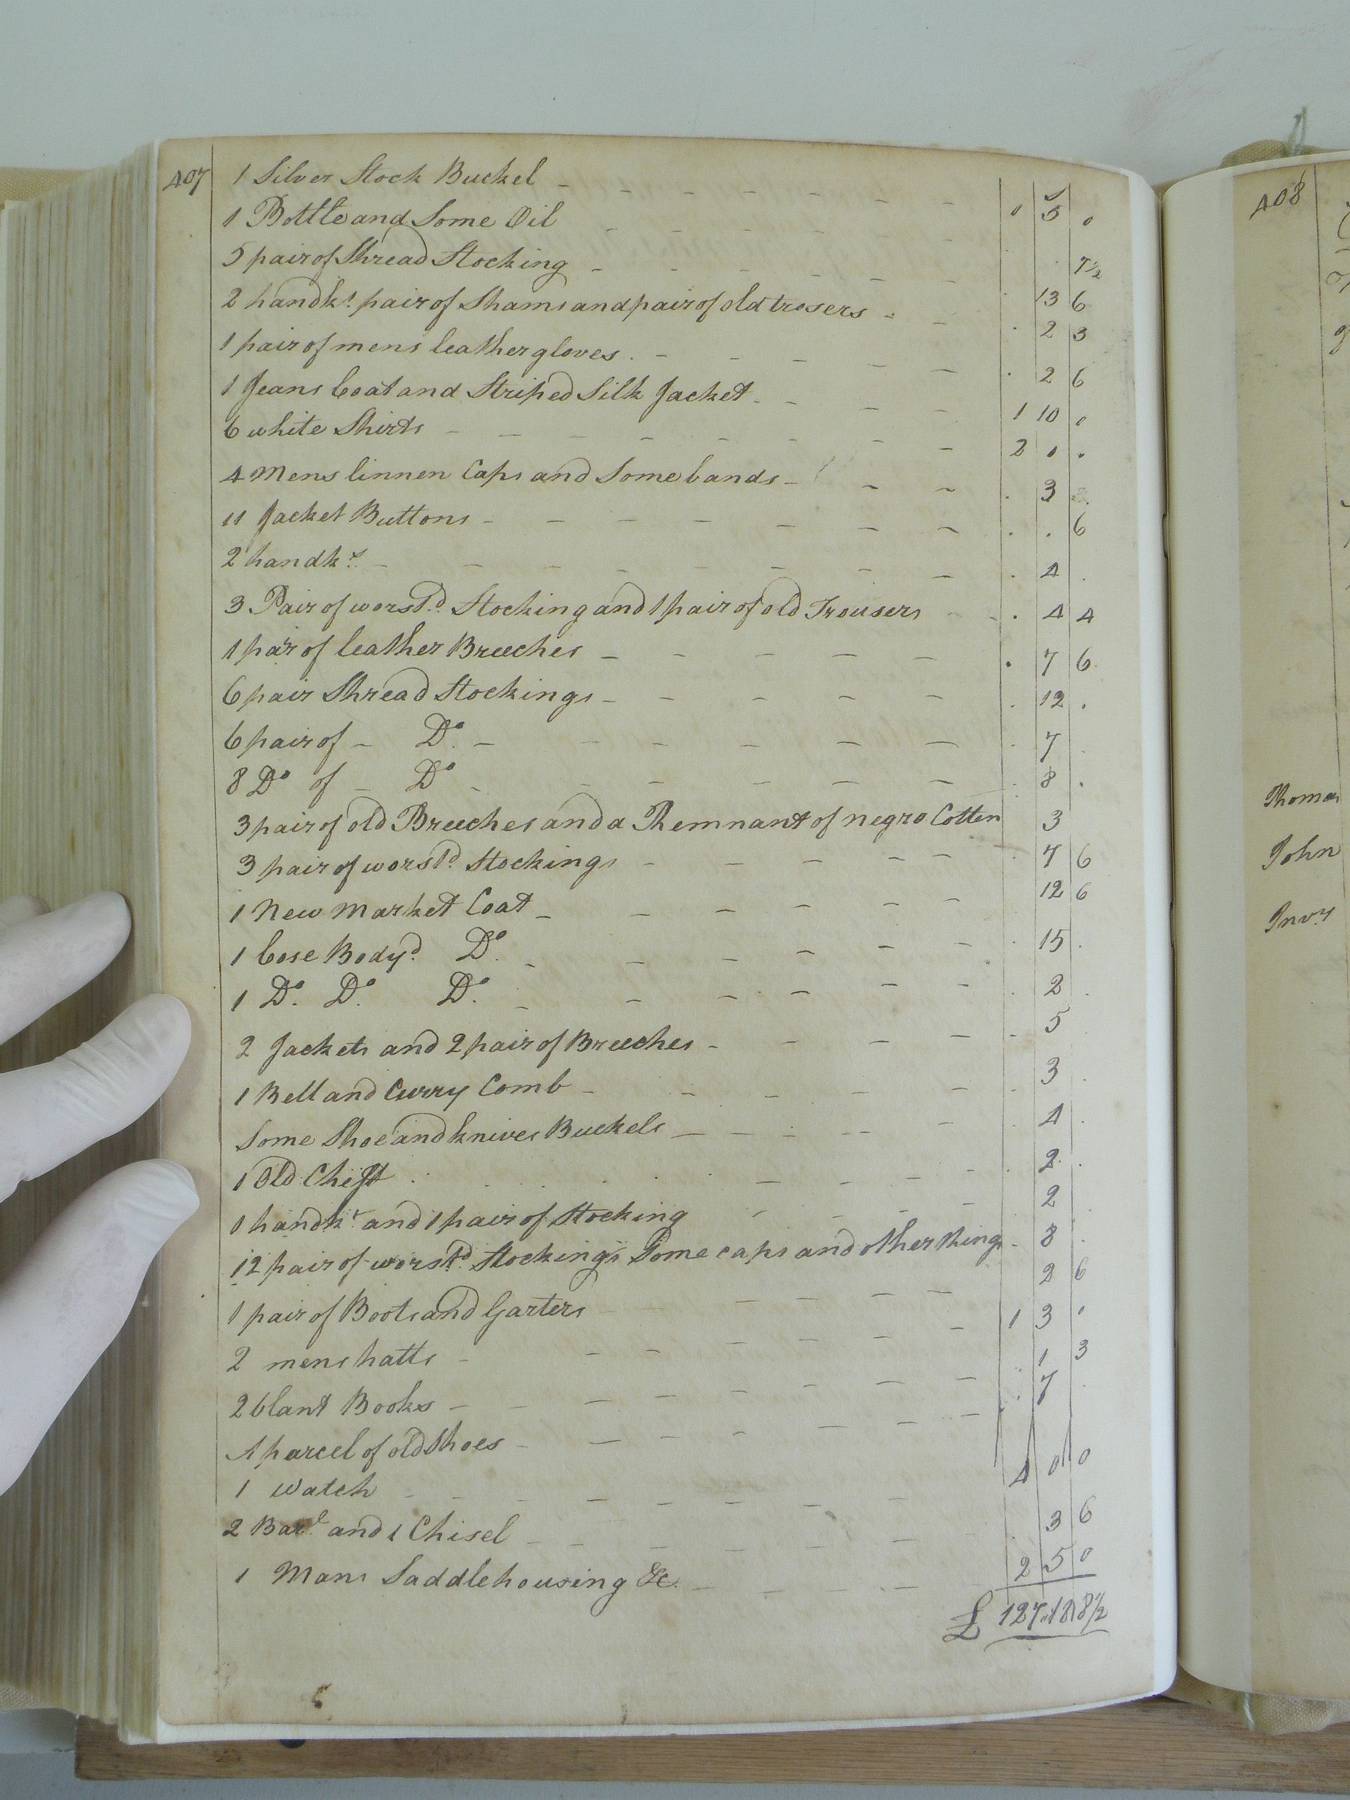 407
1 Silver Stock Buckel - - - - - - - 0 5 0
1 Bottle and Some Oil - - - - - - . . 7½
5 pair of Thread Stocking - - - - - . 13 6
2 handks. pair of Shams and pair of old trosers - - . 2 3
1 pair of mens leather gloves. - - - - - . 2 6
1 Jeans Coat and Striped Silk Jacket - - - - 1 10 0
6 white Shirts - - - - - - - - 2 0 .
4 Mens linnen Caps and Some bands - - - . 3
11 Jacket Buttons - - - - - - - - . . 6
2 handks. - - - - - - - - . 4 .
3 Pair of worstd. Stocking and 1 pair of old Trousers - . 4 4
1 pair of leather Breeches - - - - - . 7 6
6 pair Thread Stockings - - - - - . 12 .
6 pair of - Do. - - - - - - . 7 .
8 Do of - Do - - - - - - . 8 .
3 pair of old Breeches and a Remnant of negro Cotten 3
3 pair of worstd. Stockings - - - - - . 7 6
1 New Market Coat - - - - - - 12 6
1 Cose Bodyd. Do. - - - - - - . 15 .
1 Do. Do. Do. - - - - - - . 2 .
2 Jackets and 2 pair of Breeches - - - - . 5
1 Bell and Curry Comb - - - - - 3 .
Some Shoe and knives Buckels - - - - - 4 .
1 Old Chist . . . . . - - - . 2 .
1 handkr. and 1 pair of Stocking - - - - . 2
12 pair of worstd. Stockings Some caps and other things - 8 .
1 pair of Boots and Garters - - - - - 2 6
2 mens hatts - - - - - - 1 3 0
2 blank Books - - - - - - - 1 3
A parcel of old Shoes - - - - - - . 7 .
1 Watch - - - - - - - - 4 0 0
2 and 1 Chisel - - - - - - . 3 6
1 Mans Saddle housing &c. - - - - - 2 5 0
£ 127.18.8½
408
Thomas
John
Invy